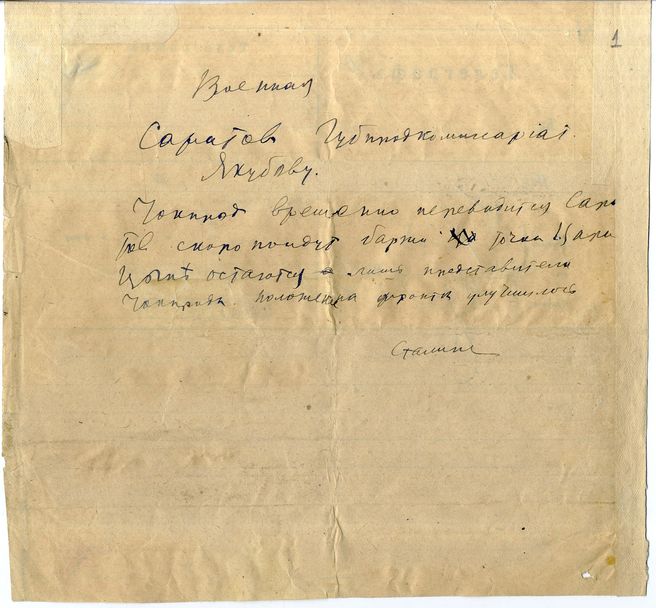 1
Военная
Саратов Губпродкомисаріат.
Якубову.
Чокпрод временно переводится Сара
тов скоро поидут баржи точка Цари
цынѣ остаются лишь представители
Чокпрода положение фронта улучшилось
Сталин